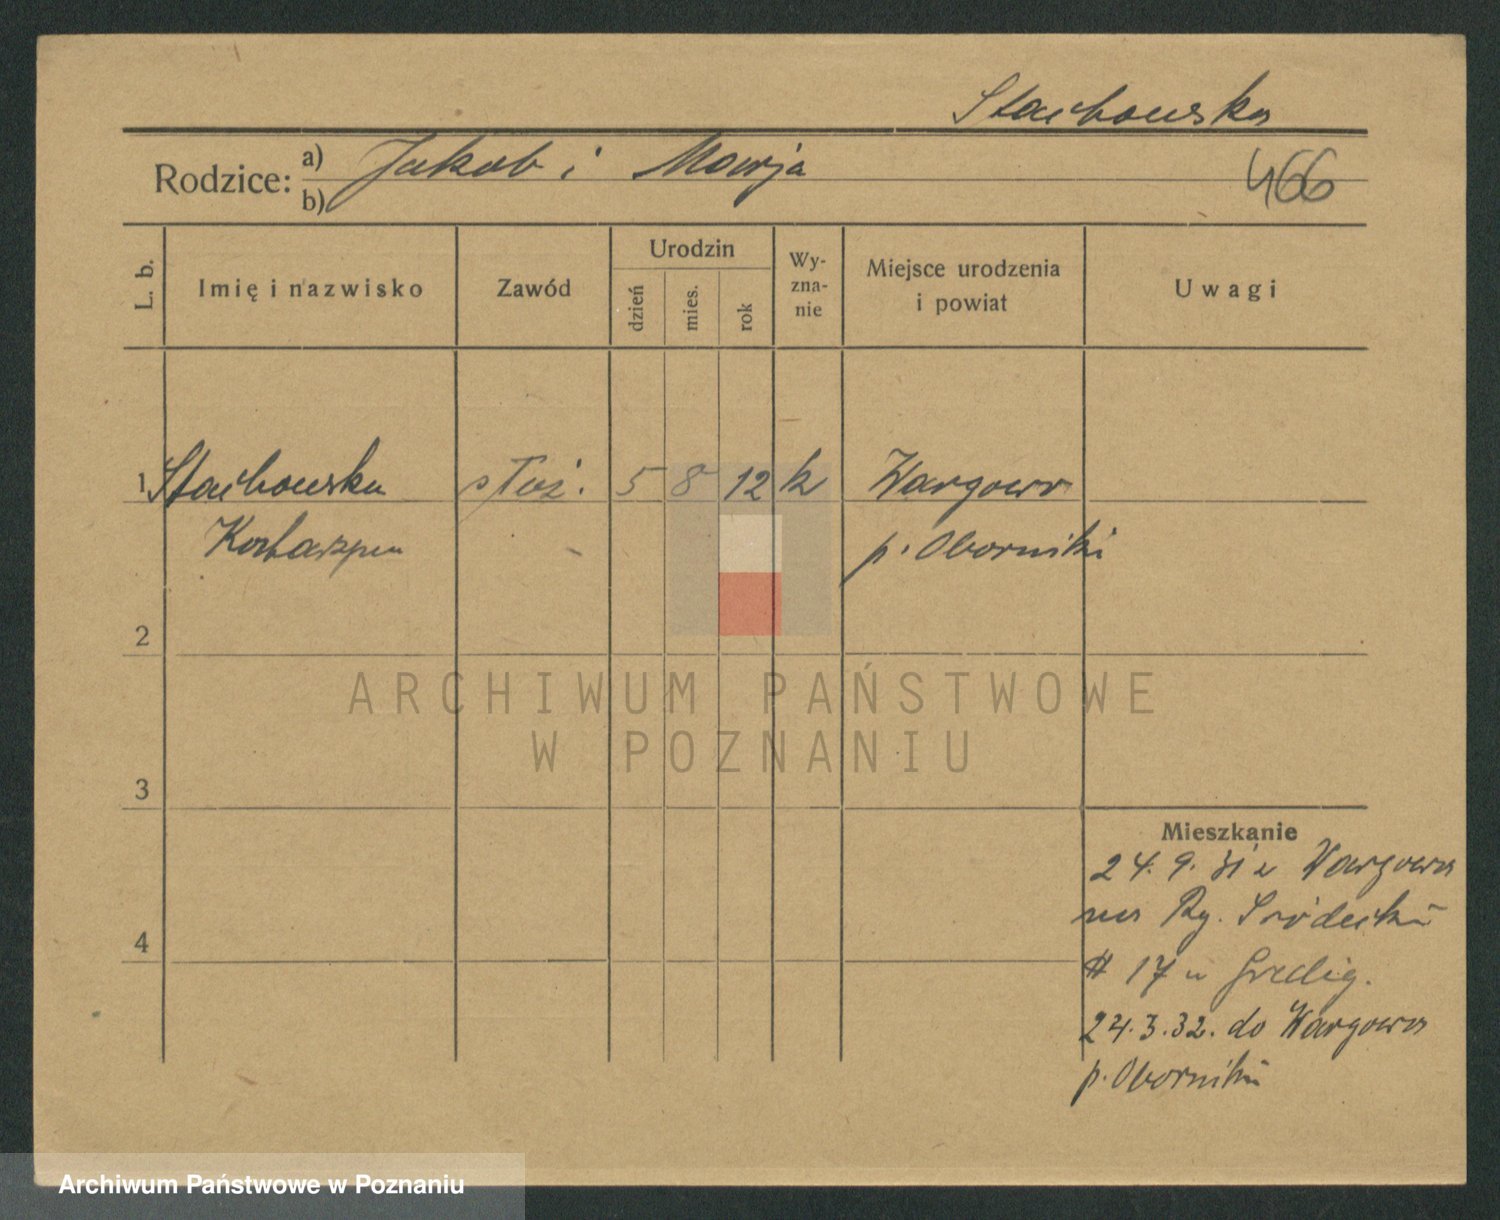 Stachowska
Rodzice: a) Jakob i Marja
b)
466
L. b.
Imię i nazwisko
Zawód
Urodzin
dzień
mies.
rok
Wy-
zna-
nie
Miejsce urodzenia
i powiat
Uwagi
1 Stachowska służ. 5 8 12 k Wargowo
p. Oborniki
2
3
4
Mieszkanie
24.9.31 z Wargowa
na Ry. Śródecki
17 u
24.3.32. do Wargowa
p. Oborniki
ARCHIWUM PAŃSTWOWE
W POZNANIU
Archiwum Państwowe w Poznaniu